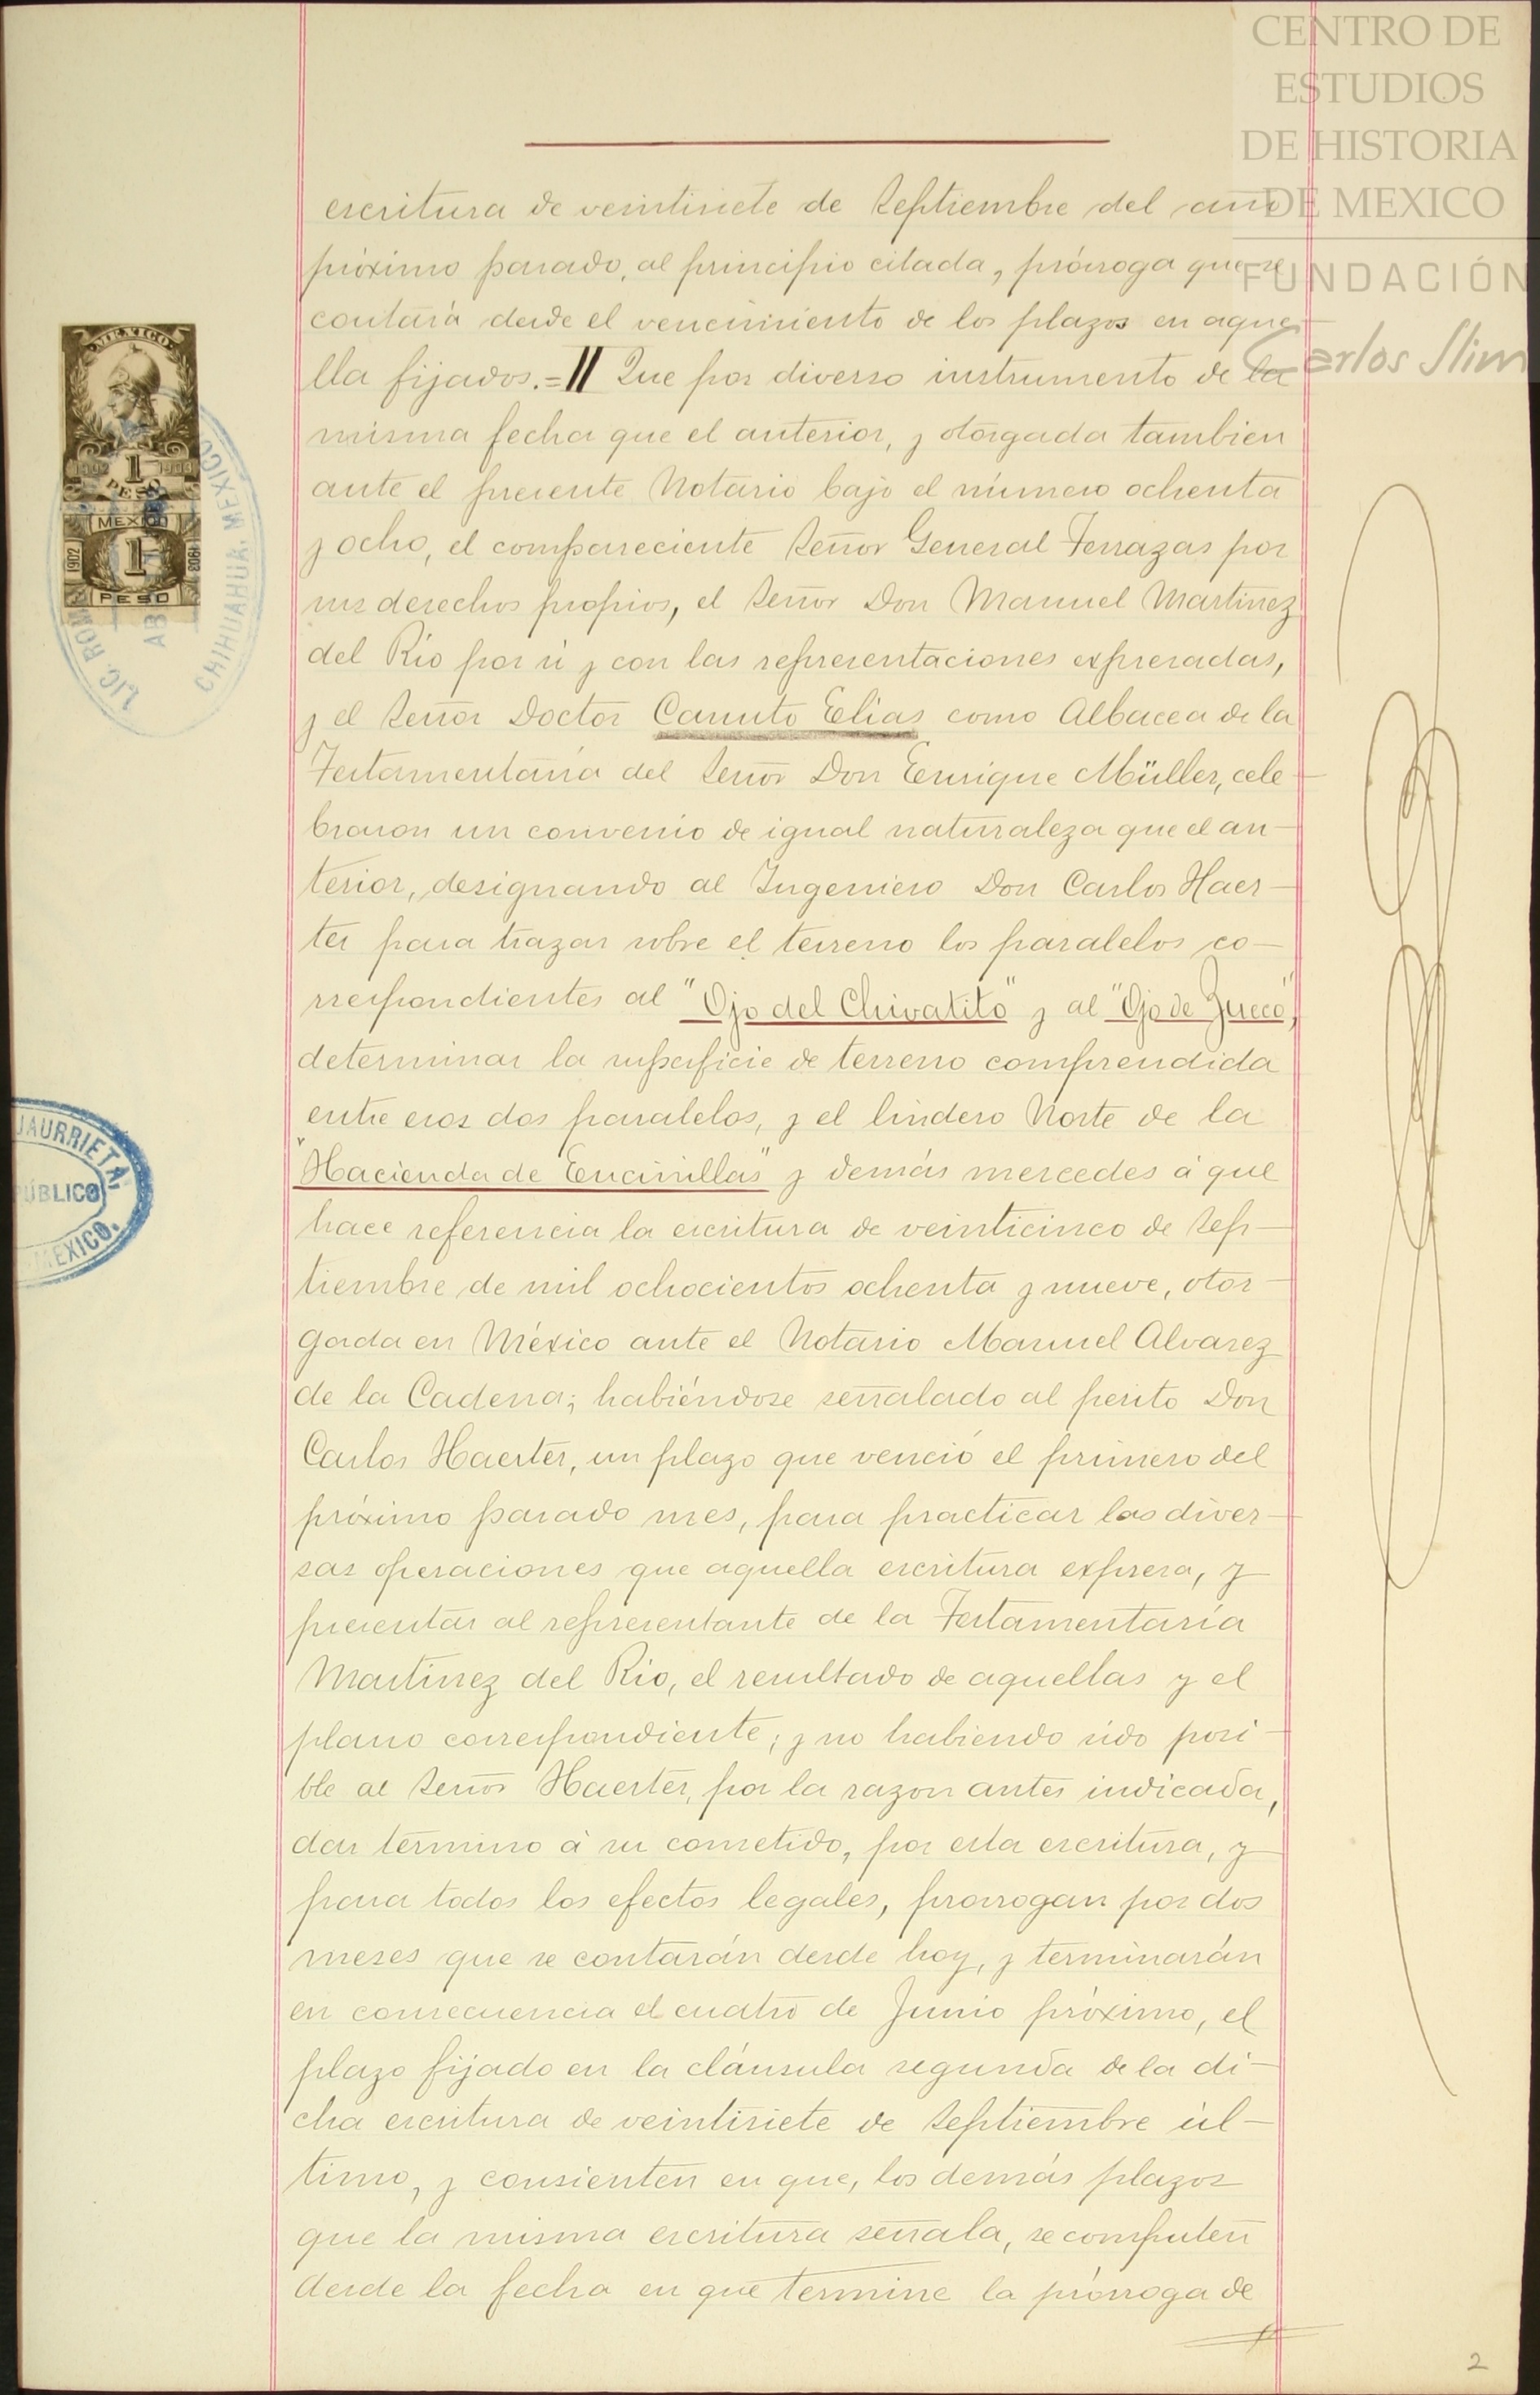 CENTRO DE
ESTUDIOS
DE HISTORIA
DE MEXICO
FUNDACIÓN
Carlos Slim
escritura de veintisiete de Septiembre del año
próximo pasado, al principio citada, prórroga que se
contará desde el vencimiento de los plazos en aque
lla fijados.=II Que por diverso instrumento de la
misma fecha que el anterior, y otorgada tambien
ante el presente Notario bajo el número ochenta
y ocho, el compareciente Señor General Terrazas por
sus derechos propios, el Señor Don Manuel Martinez
del Río por si y con las representaciones expresadas,
y el Señor Doctor Canuto Elias como Albacea de la
Testamentaría del Señor Don Enrique Müller, cele
braron un convenio de igual naturaleza que el an-
terior, designando al Ingeniero Don Carlos Haer-
ter para trazar sobre el terreno los paralelos co-
rrespondientes al "Ojo del Chivatito" y al "Ojo de Zueco",
determinar la superficie de terreno comprendida
entre esos dos paralelos, y el lindero Norte de la
"Hacienda de Encinillas" y demás mercedes á que
hace referencia la escritura de veinticinco de Sep-
tiembre de mil ochocientos ochenta y nueve, otor-
gada en México ante el Notario Manuel Alvarez
de la Cadena; habiéndose señalado al perito Don
Carlos Haerter, un plazo que venció el primero del
próximo pasado mes, para practicar las diver-
sas operaciones que aquella escritura expresa, y
presentar al representante de la Testamentaría
Martinez del Rio, el resultado de aquellas y el
plano correspondiente; y no habiendo sido posi-
ble al Señor Haerter, por la razon antes indicada,
dar término á su cometido, por esta escritura, y
para todos los efectos legales, prorrogan por dos
meses que se contarán desde hoy, y terminarán
en consecuencia el cuatro de Junio próximo, el
plazo fijado en la cláusula segunda de la di-
cha escritura de veintisiete de Septiembre úl-
timo, y consienten en que, los demás plazos
que la misma escritura señala, se computen
desde la fecha en que termine la prórroga de
MEXICO
1902 1 1903
PESO
MEXICO
1902 1 1903
PESO
CHIHUAHUA, MEXICO
JAURRIETA,
PÚBLICO
MEXICO.
2